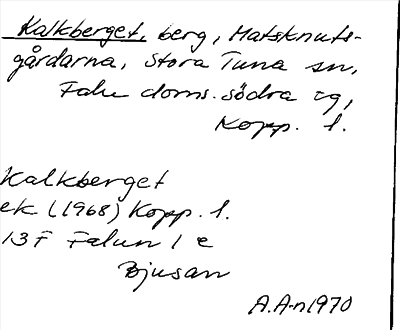 Kalkberget, berg, Matsknuts-
gårdarna, Stora Tuna sn,
Falu doms. södra tg,
Kopp. l.
Kalkberget
ek (1968) Kopp. l.
13 F Falun 1 e
Bjusan
A.A-n 1970